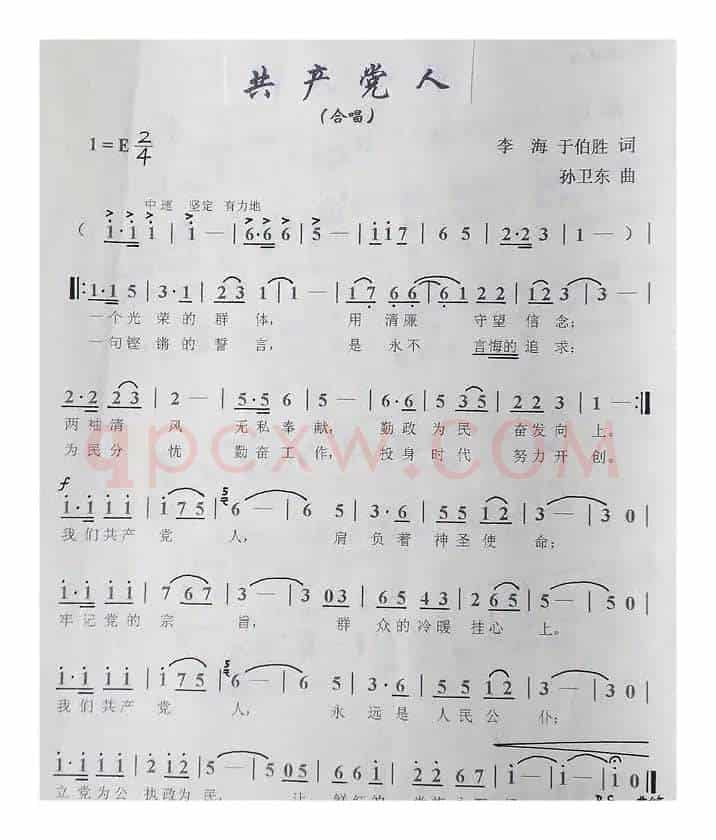 共产党人
(合唱)
1=E 2/4
李 海 于伯胜 词
孙卫东 曲
中速 坚定 有力地
( i·i i | i — | 6·6 6 | 5 — | i i 7 | 6 5 | 2·2 3 | 1 — ) |
‖: 1·1 5 | 3·1 | 2 3 1 | 1 — | 1 7 6 6 | 6 1 2 2 | 1 2 3 | 3 — |
一个光荣的 群 体, 用 清廉 守望 信 念;
一句铿锵的 誓 言, 是 永不 言悔的 追 求;
2·2 2 3 | 2 — | 5·5 6 | 5 — | 6·6 | 5 3 5 | 2 2 3 | 1 — :‖
两袖清 风 无私奉 献, 勤政为 民 奋发向 上。
为民分 忧 勤奋工 作, 投身时 代 努力开 创。
f
i·i i i | i 7 5 | 6 — | 6 5 | 3·6 | 5 5 1 2 | 3 — | 3 0 |
我们共产 党 人, 肩 负着 神圣使 命;
i·i i i | 7 6 7 | 3 — | 3 0 3 | 6 5 4 3 | 2 6 5 | 5 — | 5 0 |
牢记党的 宗 旨, 群 众的冷暖 挂心 上。
i·i i i | i 7 5 | 6 — | 6 5 | 3·6 | 5 5 1 2 | 3 — | 3 0 |
我们共产 党 人, 永 远是 人民公 仆;
i·i i i | 2 i 2 | 5 — | 5 0 5 | 6 6 i | 2 2 6 | i — | i — | i 0 ‖
立党为公 执政为 民,
qpcxw.com